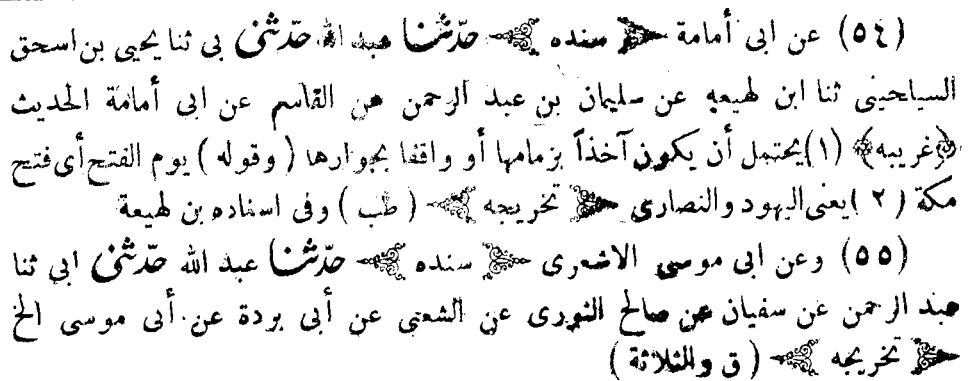 (٥٤) عن ابى أمامة ﴿ سنده ﴾ حدّثنا عبد الله حدّثنى بى ثنا يحيى بن اسحق
السيلحينى ثنا ابن لهيعه عن سليمان بن عبد الرحمن عن القاسم عن ابى أمامة الحديث
﴿غريبه﴾ (١) يحتمل أن يكون آخذاً بزمامها أو واقفا بجوارها ( وقوله ) يوم الفتح أى فتح
مكة ( ٢ ) يعنى اليهود والنصارى ﴿ تخريجه ﴾ ( طب ) وفى اسناده بن لهيعة
(٥٥) وعن ابى موسى الاشعرى ﴿ سنده ﴾ حدّثنا عبد الله حدّثنى ابى ثنا
عبد الرحمن عن سفيان عن صالح الثورى عن الشعبى عن أبى بردة عن أبى موسى الخ
﴿ تخريجه ﴾ ( ق والثلاثة )